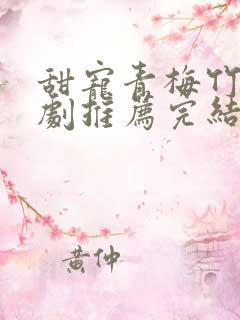 甜寵青梅竹
劇推薦完結
黃仲